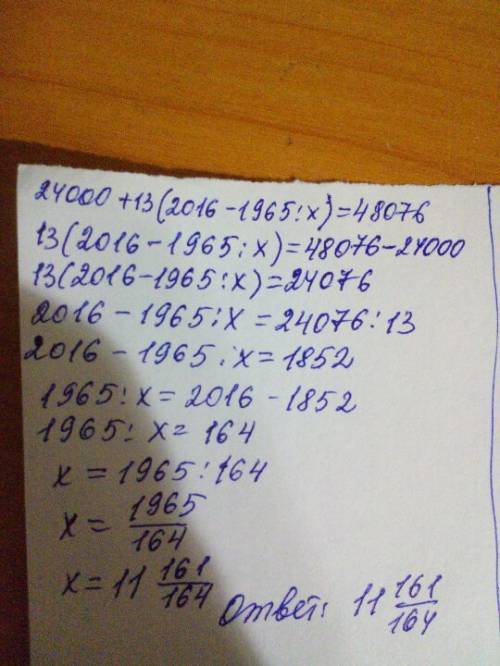 24000 + 13(2016 - 1965 : x) = 48076
13(2016 - 1965 : x) = 48076 - 24000
13(2016 - 1965 : x) = 24076
2016 - 1965 : x = 24076 : 13
2016 - 1965 : x = 1852
1965 : x = 2016 - 1852
1965 : x = 164
x = 1965 : 164
x = 1965/164
x = 11 161/164
Ответ: 11 161/164